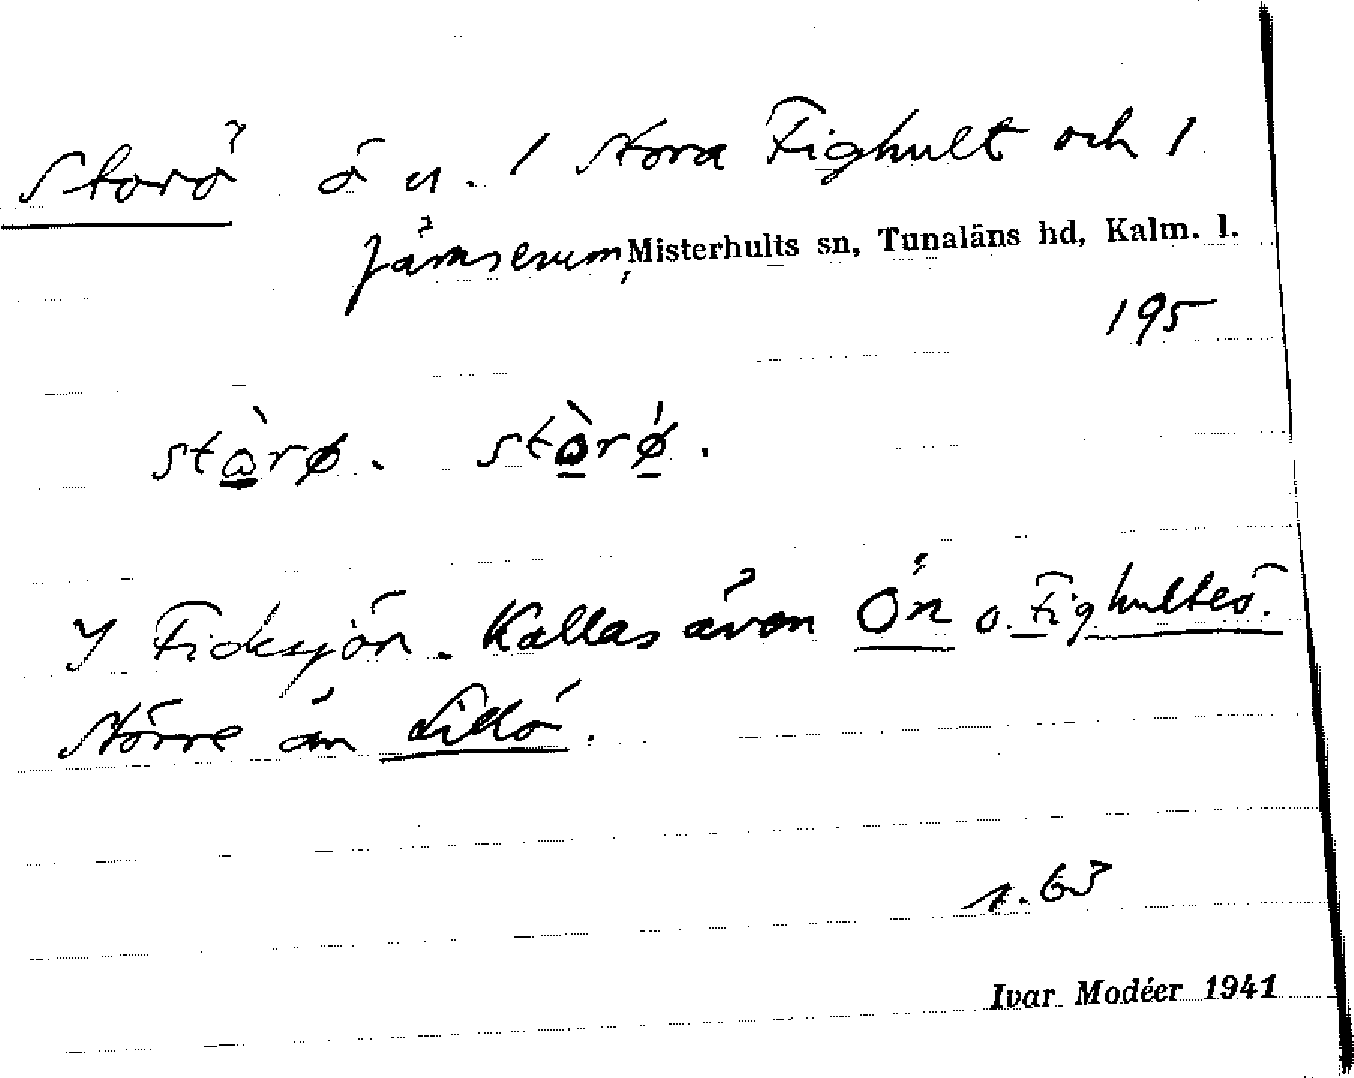 Storö ö u. 1 Norra Fighult och 1
Jämserum, Misterhults sn, Tunaläns hd, Kalm. l.
195
stàrø. stàrǿ.
I Ficksjön. Kallas även Ön o. Fighulteö.
Större än Lillö.
s. 63
Ivar Modéer 1941